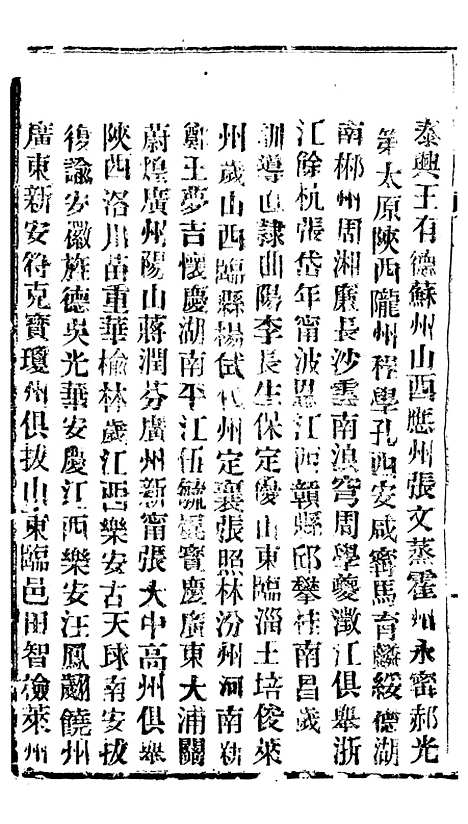 泰興王有德蘇州山西應州張文蒸霍州永寗郝光
第太原陝西隴州程學孔西安咸寗馬育麟綏德湖
南郴州周湘廣長沙雲南浪穹周學夔澂江俱舉浙
江餘杭張岱年甯波恩江西贛縣邱攀桂南昌歲
訓導直隸曲陽李長生保定優山東臨淄王培俊萊
州歲山西臨縣楊代州定襄張照林汾州河南新
鄭王夢吉懷慶湖南平江伍毓焜寶慶廣東大浦關
蔚煌廣州陽山蔣潤芬廣州新甯張大中高州俱舉
陝西洛川苗重華榆林歲江西樂安古天球南安拔
復諭安徽旌德吳光華安慶江西樂安汪鳳翽饒州
廣東新安符克寶瓊州俱拔山東臨邑田智檢萊州